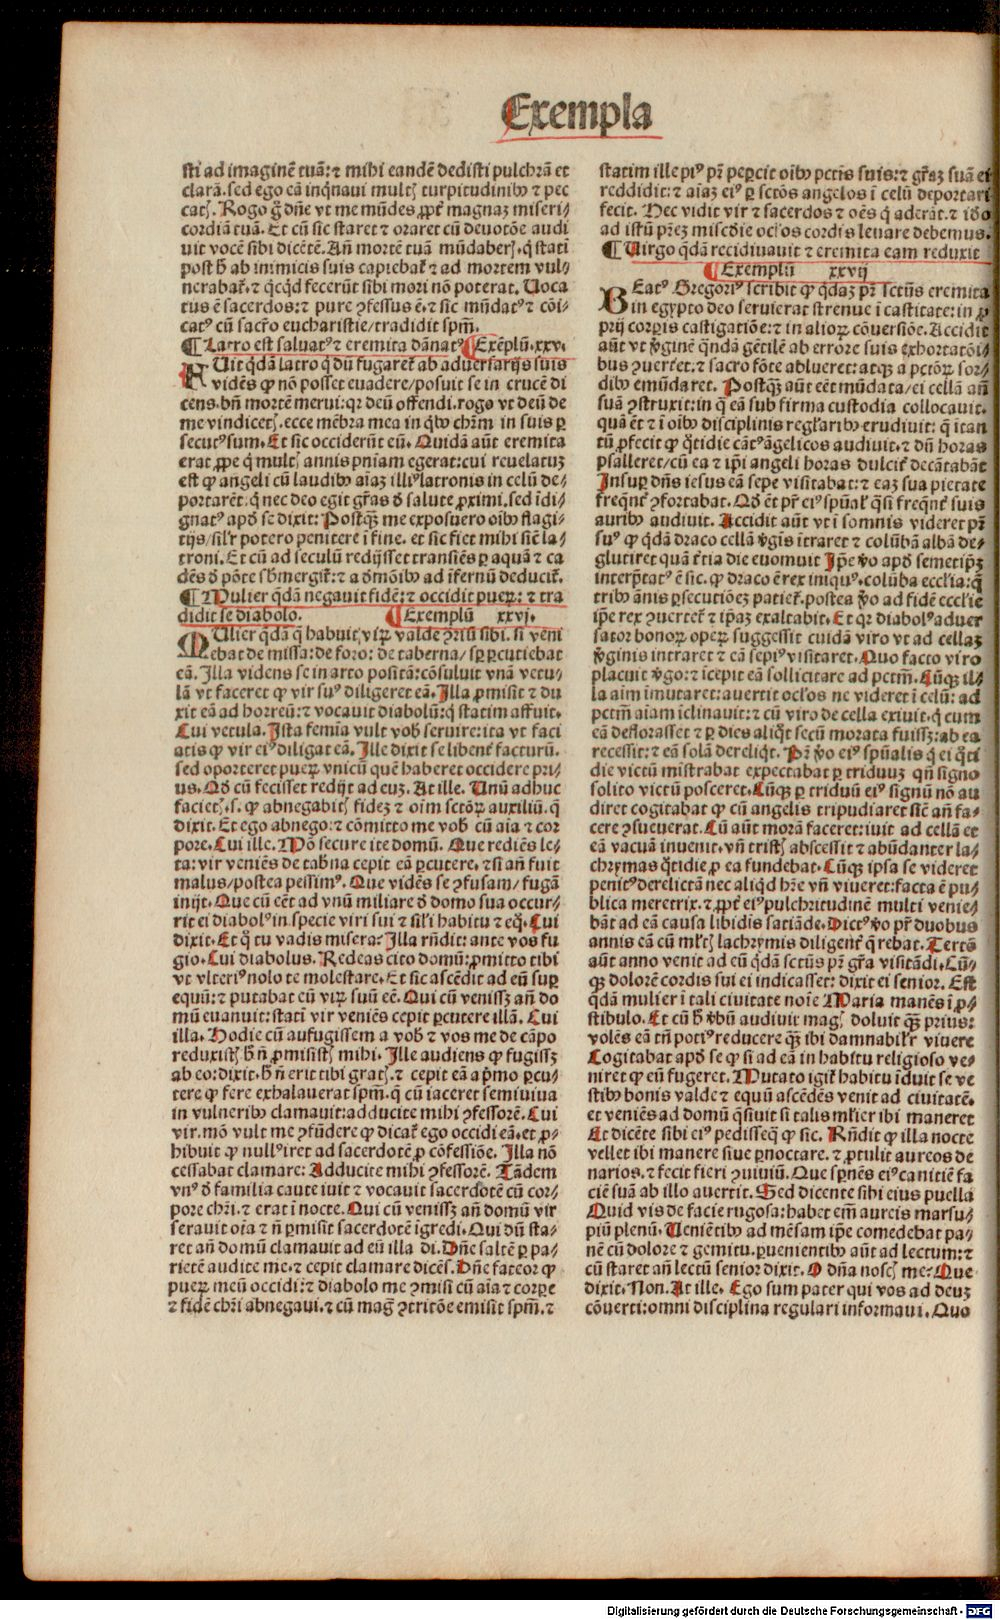 Exempla
sti ad imaginē tuā: ⁊ mihi eandē dedisti pulchrā et
clarā. sed ego eā inq̄naui multꝭ turpitudinibꝰ ⁊ pec
catꝭ. Rogo g̊ dn̄e vt me mūdes ꝓpt̄ magnaꝫ miseri/
cordiā tuā. Et cū sic staret ⁊ oraret cū deuotōe audi
uit vocē sibi dicētē. An̄ mortē tuā mūdaberꝭ. q̇ stati
post hͦ ab inimicis suis capiebat̄ ⁊ ad mortem vul⸗
nerabat̄. ⁊ q̇cq̇d fecerūt sibi mori nō poterat. Uoca
tus ē sacerdos: ⁊ pure ꝯfessus ē. ⁊ sic mūdatꝰ ⁊ cōi⸗
catꝰ cū sacr̄o eucharistie/ tradidit spm̄.
¶ Latro est saluatꝰ ⁊ eremita dānatꝰ ¶ Exēplū. xxv.
FUit q̇dā latro q̇ dū fugaret̄ ab aduersarijs suis
vidēs ꝙ nō posset euadere/ posuit se in crucē di
cens. bn̄ mortē merui: qꝛ deū offendi. rogo vt deū de
me vindicetꝭ. ecce mēbra mea in q̇bꝰ chr̄m in suis ꝑ
secutꝰ sum. Et sic occiderūt eū. Quidā aūt eremita
erat ꝓpe q̇ multꝭ annis pn̄iam egerat: cui reuelatuꝫ
est ꝙ angeli cū laudibꝰ aīaꝫ illiꝰ latronis in celū de⸗
portarēt. q̇ nec deo egit gr̄as ð salute ꝓximi. sed īdi⸗
gnatꝰ apđ se dixit: Postq̄ꝫ me exposuero oībꝰ flagi⸗
tijs/ silr̄ potero penitere ī fine. et sic fiet mihi sic̄ la⸗
troni. Et cū ad seculū redijsset transiēs ꝑ aquā ⁊ ca
dēs ð pōte sb̄mergit̄: ⁊ a ðmōibꝰ ad īfernū deducit̄.
¶ Mulier q̄dā negauit fidē: ⁊ occidit pueꝝ: ⁊ tra
didit se diabolo. ¶ Exemplū xxvj.
MUlier q̄dā q̄ habuit viꝝ valde ꝯriū sibi. si veni
ebat de missa: de foro: de taberna/ sꝑ ꝑcutiebat
eā. Illa videns se in arto positā: cōsuluit vnā vetu⸗
lā vt faceret ꝙ vir suꝰ diligeret eā. Illa ꝓmisit ⁊ du
xit eā ad horreū: ⁊ vocauit diabolū: q̇ statim affuit.
Cui vetula. Ista femīa vult vob̄ seruire: ita vt faci
atis ꝙ vir eiꝰ diligat eā. Ille dixit se libent̄ facturū.
sed oporteret pueꝝ vnicū quē haberet occidere pri⸗
us. Qđ cū fecisset redijt ad euꝫ. At ille. Unū adhuc
facietꝭ. s. ꝙ abnegabitꝭ fideꝫ ⁊ oīm sctōꝝ auxiliū. q̄
dixit. Et ego abnego: ⁊ cōmitto me vob̄ cū aīa ⁊ cor
pore. Cui ille. Mō secure ite domū. Que rediēs le⸗
ta: vir veniēs de tab̄na cepit eā ꝑcutere. ⁊ si an̄ fuit
malus/ postea pessimꝰ. Que vidēs se ꝯfusam/ fugā
inijt. Que cū eēt ad vnū miliare ð domo sua occur⸗
rit ei diabolꝰ in specie viri sui ⁊ sil'i habitu ⁊ eq̊. Cui
dixit. Et q̊ tu vadis misera? Illa rn̄dit: ante vos fu
gio. Cui diabolus. Redeas cito domū: ꝓmitto tibi
vt vlteriꝰ nolo te molestare. Et sic ascēdit ad eū suꝑ
equū: ⁊ putabat cū viꝝ suū eē. Qui cū venissꝫ an̄ do
mū euanuit: stati vir veniēs cepit ꝑcutere illā. Cui
illa. Hodie cū aufugissem a vob̄ ⁊ vos me de cāpo
reduxistꝭ hͦ n̄ ꝓmisistꝭ mihi. Ille audiens ꝙ fugissꝫ
ab eo: dixit. hͦ n̄ erit tibi gratꝭ. ⁊ cepit eā a pͥmo ꝑcu⸗
tere ꝙ fere exhalauerat spm̄. q̄ cū iaceret semiuiua
in vulneribꝰ clamauit: adducite mihi ꝯfessorē. Cui
vir. mō vult me ꝯfūdere ꝙ dicat̄ ego occidi eā. et ꝓ⸗
hibuit ꝙ nullꝰ iret ad sacerdotē ꝓ cōfessiōe. Illa nō
cessabat clamare: Adducite mihi ꝯfessorē. Tādem
vnꝰ ð familia caute iuit ⁊ vocauit sacerdotē cū cor⸗
pore chr̄i. ⁊ erat ī nocte. Qui cū venissꝫ an̄ domū vir
serauit oīa ⁊ n̄ ꝑmisit sacerdotē īgredi. Qui dū sta⸗
ret an̄ domū clamauit ad eū illa di. Dn̄e saltē ꝑ pa⸗
rietē audite me. ⁊ cepit clamare dicēs. Dn̄e fateor ꝙ
pueꝝ meū occidi: ⁊ diabolo me ꝯmisi cū aīa ⁊ corꝑe
⁊ fidē chr̄i abnegaui. ⁊ cū mag̊ ꝯtritōe emisit spm̄. ⁊
statim ille piꝰ pr̄ peꝑcit oībꝰ pctīs suis: ⁊ gr̄aꝫ suā ei
reddidit: ⁊ aīaꝫ eiꝰ ꝑ sctōs angelos ī celū deportari
fecit. Hec vidit vir ⁊ sacerdos ⁊ oēs q̇ aderāt. ⁊ iđo
ad istū pr̄eꝫ misc̄die oc̄los cordis leuare debemus.
¶ Uirgo q̄dā recidiuauit ⁊ eremita eam reduxit
¶ Exemplū xxvij
BEatꝰ Gregoriꝰ scribit ꝙ q̇daꝫ pr̄ sctūs eremita
in egypto deo seruierat strenue ī castitate: in ꝓ
prij corꝑis castigatiōe: ⁊ in alioꝝ cōuersiōe. Accidit
aūt vt v̄ginē q̄ndā gētilē ab errore suis exhortatōi⸗
bus ꝯuertet̄: ⁊ sacro fōte ablueret: atqꝫ a pctōꝝ sor⸗
dibꝰ emūdaret. Postq̄ꝫ aūt eēt mūdata/ ei cellā an̄
suā ꝯstruxit: in q̄ eā sub firma custodia collocauit.
quā ēt ⁊ ī oībꝰ disciplinis regl'aribꝰ erudiuit: q̄ ītan
tū ꝓfecit ꝙ q̊tidie cātꝰ āgelicos audiuit. ⁊ dū horas
psalleret/ cū ea ⁊ ip̄i angeli horas dulcit̄ decātabāt
Insuꝑ dn̄s iesus eā sepe visitabat: ⁊ eaꝫ sua pietate
freq̄nt̄ ꝯfortabat. Qđ ēt pr̄ eiꝰ spūal' q̄si freq̄nt̄ suis
auribꝰ audiuit. Accidit aūt vt ī somnis videret pr̄
suꝰ ꝙ q̇dā draco cellā v̄gīs ītraret ⁊ colūbā albā de⸗
glutiret quā t̄tia die euomuit Ip̄e v̄o apđ semetip̄ꝫ
interp̄tatꝰ ē sic. ꝙ draco ē rex iniquꝰ. colūba eccl'ia: q̄
tribꝰ ānis ꝑsecutiōeꝫ patiet̄. postea v̄o ad fidē eccl'ie
ip̄e rex ꝯuertet̄ ⁊ ip̄aꝫ exaltabit. Et qꝛ diabolꝰ aduer
sator bonoꝝ opeꝝ suggessit cuidā viro vt ad cellaꝫ
v̄ginis intraret ⁊ eā sepiꝰ visitaret. Quo facto viro
placuit v̄go: ⁊ īcepit eā sollicitare ad pctm̄. Cūqꝫ il⸗
la aīm īmutaret: auertit oc̄los ne videret ī celū: ad
pctm̄ aīam īclinauit: ⁊ cū viro de cella exiuit. q̇ cum
eā deflorasset ⁊ ꝑ dies aliq̊t secū morata fuissꝫ: ab ea
recessit: ⁊ eā solā dereliq̇t. Pr̄ v̄o eiꝰ spūalis q̇ ei q̊ti
die victū mīstrabat expectabat ꝑ triduuꝫ qn̄ signo
solito victū posceret. Cūqꝫ ꝑ triduū eiꝰ signū nō au
diret cogitabat ꝙ cū angelis tripudiaret sic̄ an̄ fa⸗
cere ꝯsueuerat. Cū aūt morā faceret: iuit ad cellā et
eā vacuā inuenit. vn̄ tristꝭ abscessit ⁊ abūdanter la⸗
chrymas q̊tidie ꝓ ea fundebat. Cūqꝫ ipsa se videret
penitꝰ derelictā nec aliq̇d hr̄e vn̄ viueret: facta ē pu⸗
blica meretrix. ⁊ ꝓpt̄ eiꝰ pulchritudinē multi venie⸗
bāt ad eā causa libidīs satiāde. Dictꝰ v̄o pr̄ duobus
annis eā cū ml'tꝭ lachrymis diligent̄ q̄rebat. Tertō
aūt anno venit ad eū q̇dā sctūs pr̄ gr̄a visitādi. Cū⸗
qꝫ dolorē cordis sui ei indicasset: dixit ei senior. Est
q̄dā mulier ī tali ciuitate noīe Maria manēs ī ꝓ⸗
stibulo. Et cū hͦ v̄bū audiuit magꝭ doluit q̄ꝫ prius:
volēs eā tn̄ potiꝰ reducere q̄ꝫ ibi damnabilr̄ viuere
Cogitabat apđ se ꝙ si ad eā in habitu religioso ve⸗
niret ꝙ eū fugeret. Mutato igit̄ habitu īduit se ve
stibꝰ bonis valde ⁊ equū ascēdēs venit ad ciuitatē.
et veniēs ad domū q̄siuit si talis ml'ier ibi maneret
Et dicēte sibi eiꝰ pedisseq̄ ꝙ sic. Rn̄dit ꝙ illa nocte
vellet ibi manere siue ꝑnoctare. ⁊ ꝓtulit aureos de
narios. ⁊ fecit fieri ꝯuiuiū. Que sꝑnēs eiꝰ canitiē fa
ciē suā ab illo auertit. Sed dicente sibi eius puella
Quid vis de facie rugosa: habet em̄ aureis marsu⸗
piū plenū. Ueniētibꝰ ad mēsam ip̄e comedebat pa⸗
nē cū dolore ⁊ gemitu. ꝑuenientibꝰ aūt ad lectum: ⁊
cū staret an̄ lectū senior dixit. O dn̄a noscꝭ me? Que
dixit. Non. At ille. Ego sum pater qui vos ad deuꝫ
cōuerti: omni disciplina regulari informaui. Quo
Digitalisierung gefördert durch die Deutsche Forschungsgemeinschaft - DFG